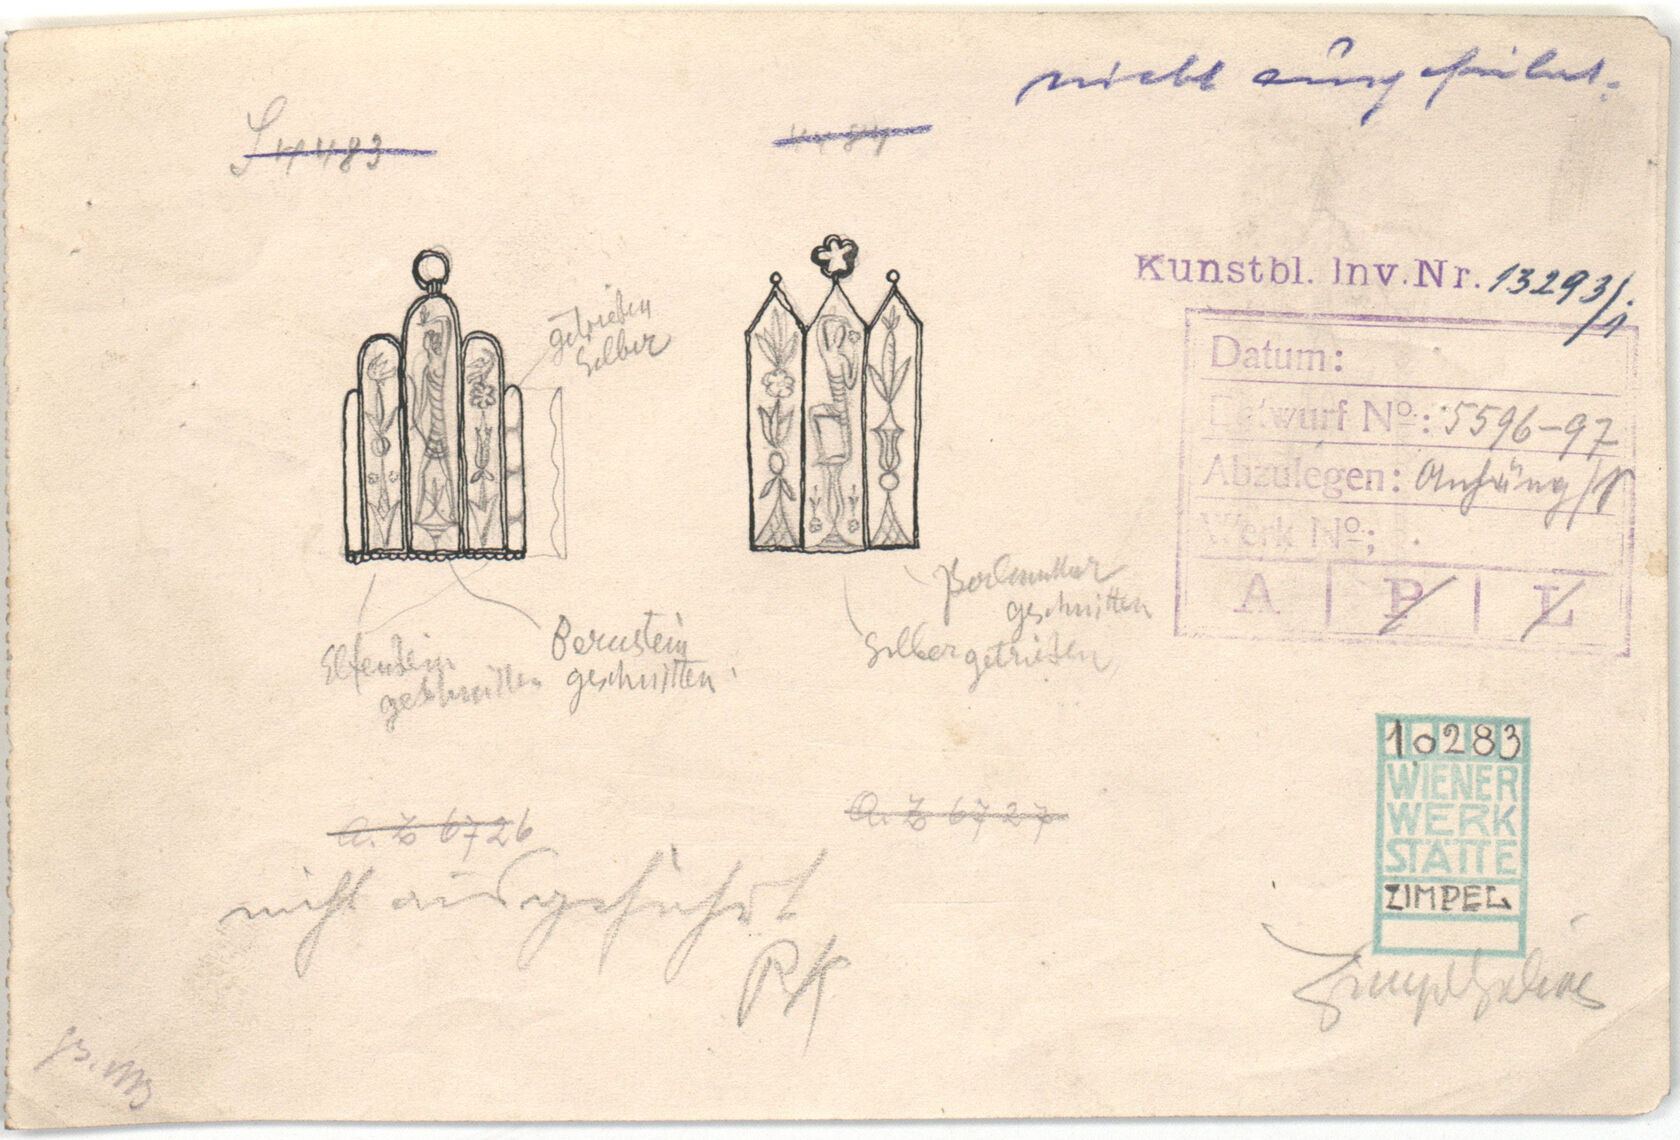 nicht ausgeführt.
S 4483
4484
Kunstbl. Inv.Nr. 13293/1
Datum:
Entwurf No: 5596-97
Abzulegen: Anhäng/
Werk No;
A P L
getrieben
Silber
Elfenbein
geschnitten
Bernstein
geschnitten
Perlmutter
geschnitten
Silber getrieben
a. Z 6726
a. Z 6727
nicht ausgeführt
RK
10283
WIENER
WERK
STÄTTE
ZIMPEL